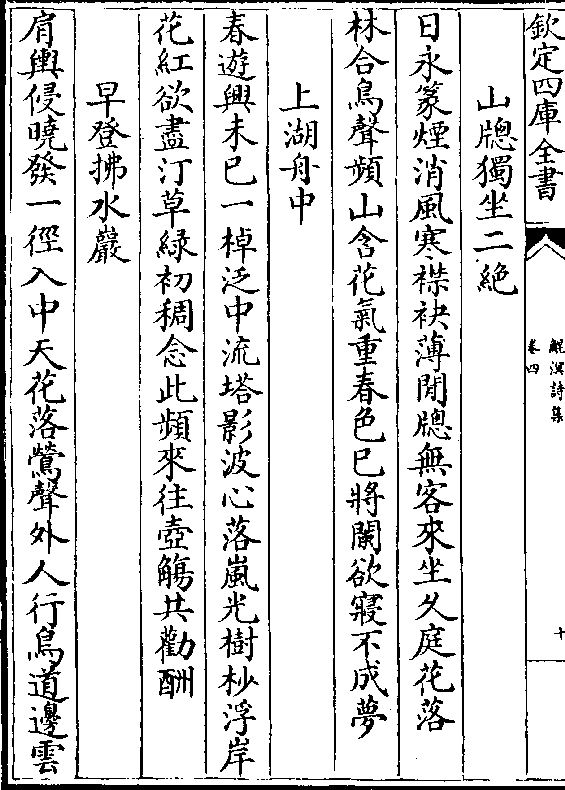 欽定四庫全書
鯤溟詩集
卷四
十
山牕獨坐二絶
日永篆煙消風寒襟袂薄閒牕無客來坐久庭花落
林合鳥聲頻山含花氣重春色已將闌欲寢不成夢
上湖舟中
春遊興未已一棹泛中流塔影波心落嵐光樹杪浮岸
花紅欲盡汀草緑初稠念此頻來往壺觴共勸酬
早登拂水巖
肩輿侵曉發一徑入中天花落鶯聲外人行鳥道邊雲